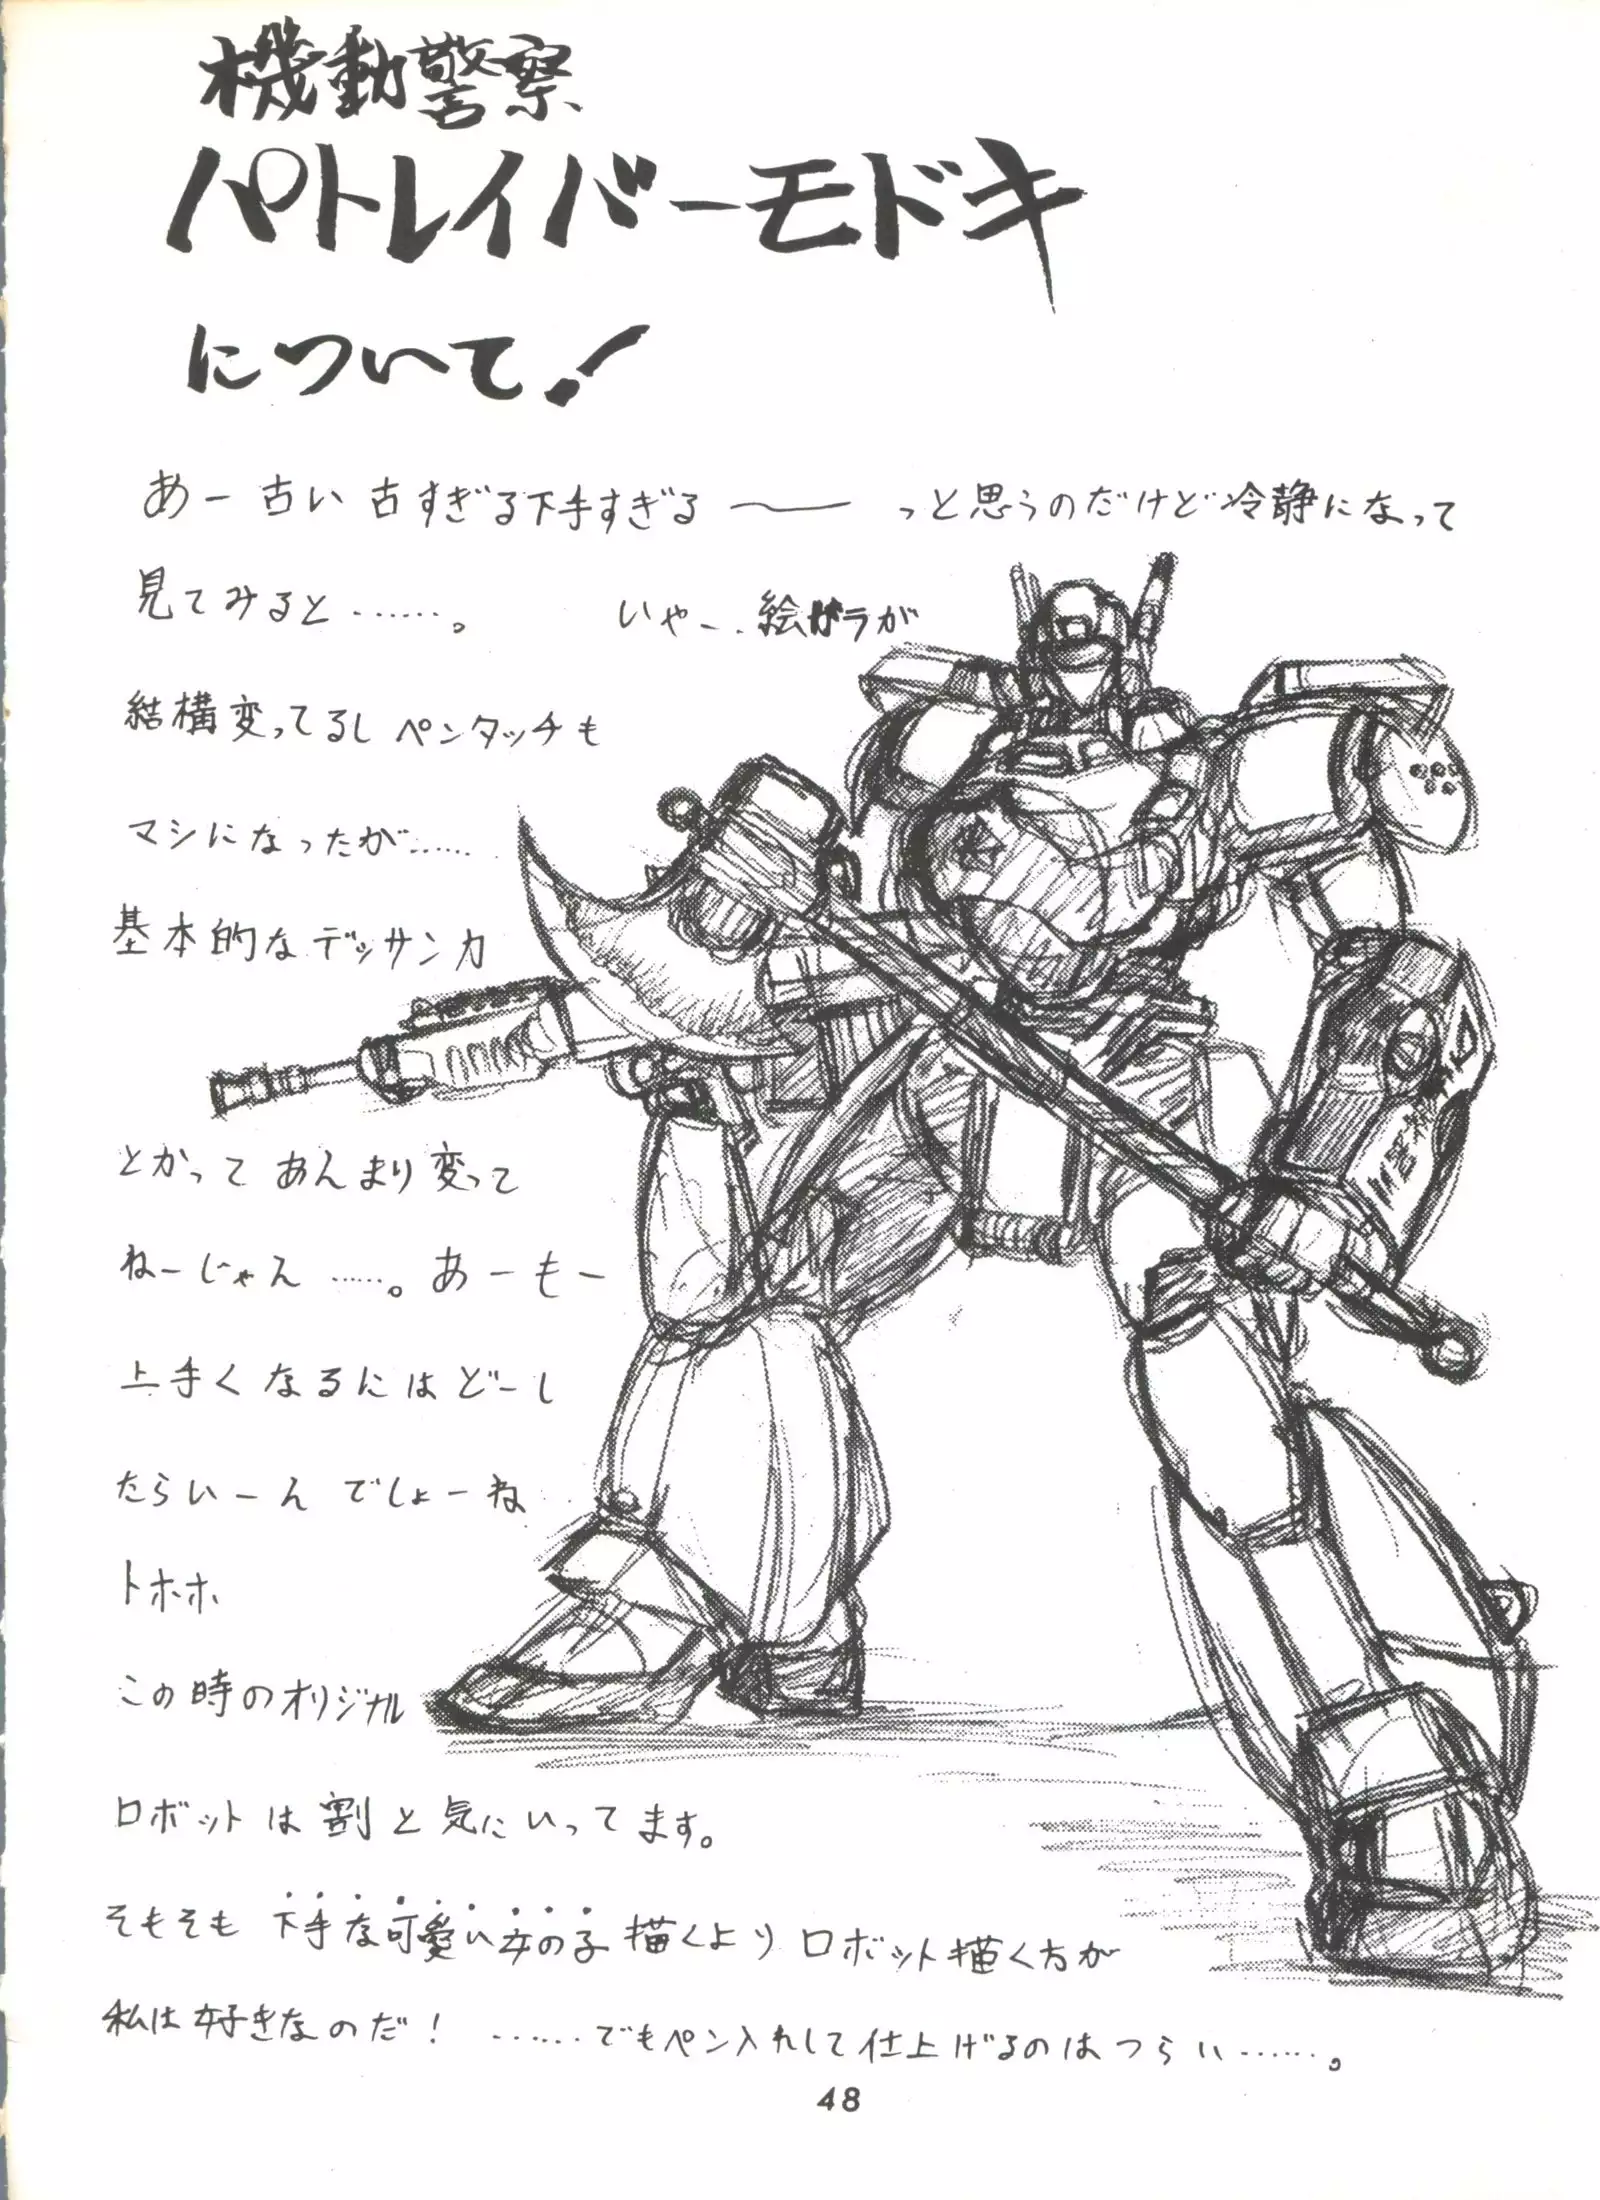 機動警察
パトレイバーモドキ
について!
あー古い古すぎる下手すぎる〜っと思うのだけど冷静になって
見てみると……。 いやー、絵ガラが
結構変ってるしペンタッチも
マシになったが……
基本的なデッサン力
とかってあんまり変って
ねーじゃん……。あーもー
上手くなるにはどーし
たらいーんでしょーね
トホホ
この時のオリジナル
ロボットは割と気にいってます。
そもそも下手な可愛い女の子描くよりロボット描く方が
私は好きなのだ! ……でもペン入れして仕上げるのはつらい……。
48